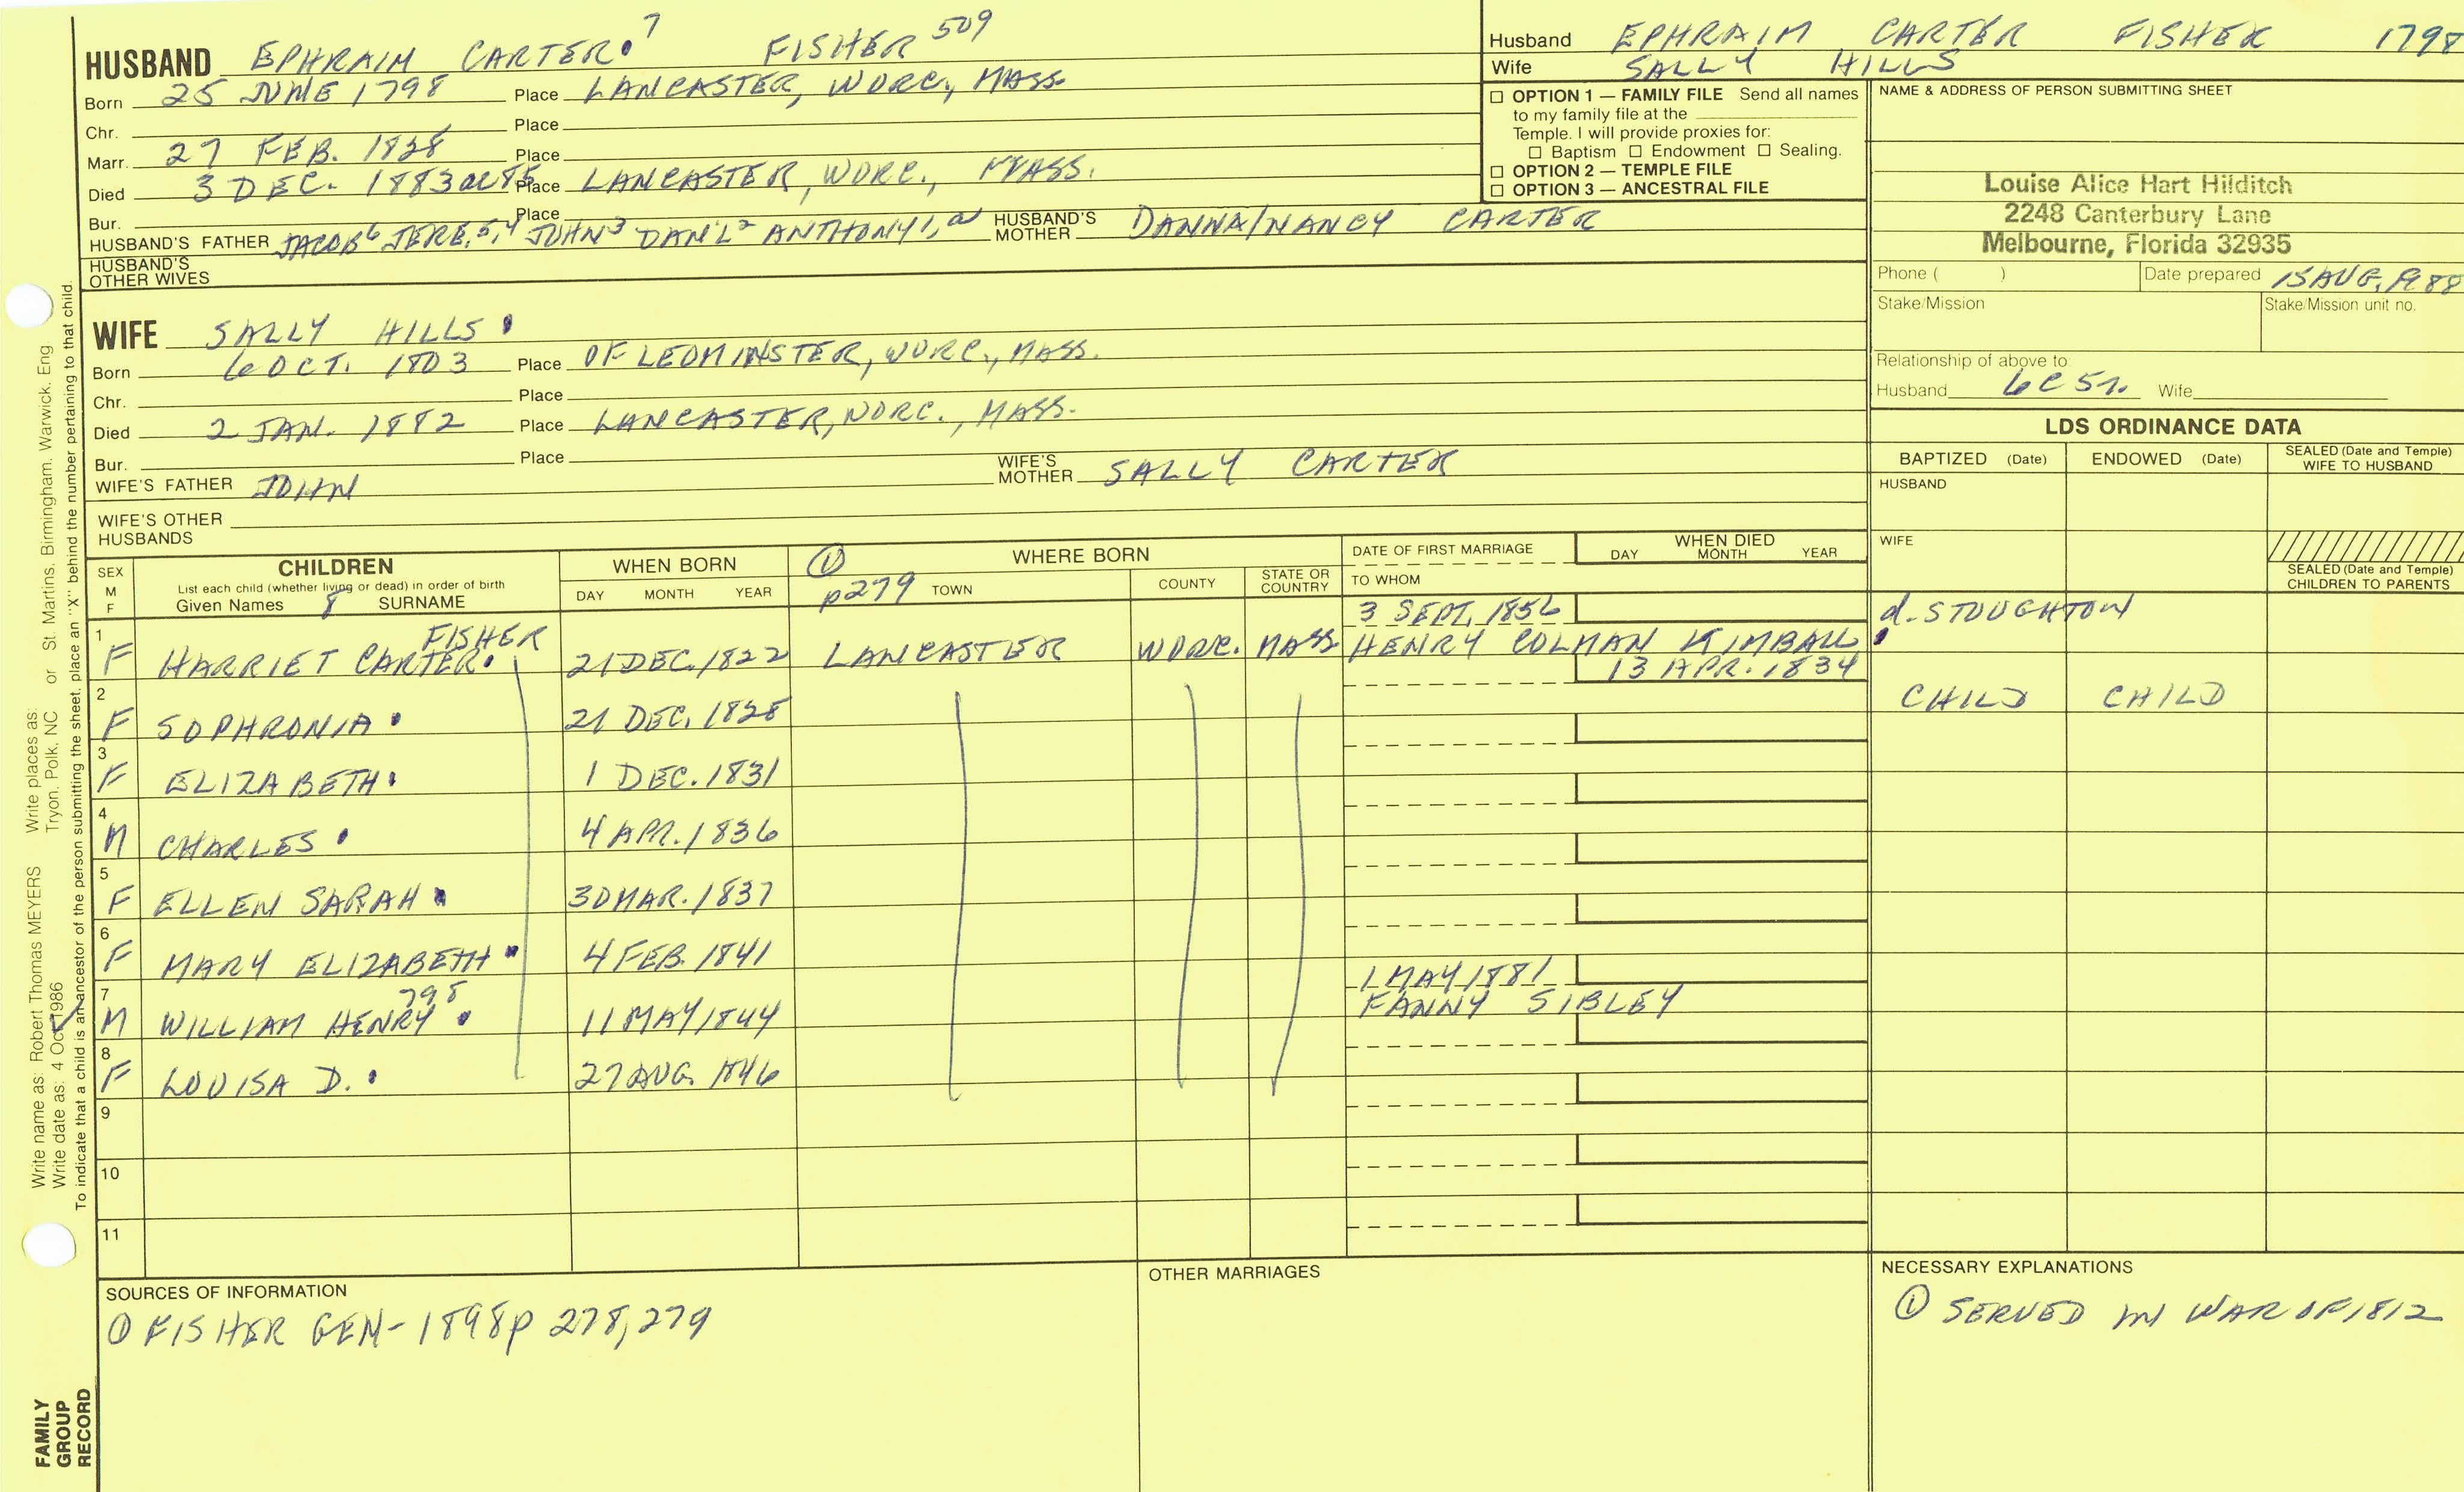 HUSBAND EPHRAIM CARTER.7 FISHER 509
Born 25 JUNE 1798 Place LANCASTER, WORC., MASS.
Chr. Place
Marr. 27 FEB. 1828 Place
Died 3 DEC. 1883 OR 85 Place LANCASTER, WORC., MASS.
Bur. Place
HUSBAND'S FATHER JACOB6 JERE.5,4 JOHN3 DAN'L2 ANTHONY1,2 HUSBAND'S MOTHER DANNA/NANCY CARTER
HUSBAND'S OTHER WIVES
WIFE SALLY HILLS.
Born 6 OCT. 1803 Place OF LEOMINSTER, WORC., MASS.
Chr. Place
Died 2 JAN. 1882 Place LANCASTER, WORC., MASS.
Bur. Place
WIFE'S FATHER JOHN WIFE'S MOTHER SALLY CARTER
WIFE'S OTHER HUSBANDS
Husband EPHRAIM CARTER FISHER 1798
Wife SALLY HILLS
☐ OPTION 1 — FAMILY FILE Send all names
to my family file at the
Temple. I will provide proxies for:
☐ Baptism ☐ Endowment ☐ Sealing.
☐ OPTION 2 — TEMPLE FILE
☐ OPTION 3 — ANCESTRAL FILE
NAME & ADDRESS OF PERSON SUBMITTING SHEET
Louise Alice Hart Hilditch
2248 Canterbury Lane
Melbourne, Florida 32935
Phone ( ) Date prepared 15 AUG, 1988
Stake/Mission Stake/Mission unit no.
Relationship of above to
Husband 6C5r. Wife
LDS ORDINANCE DATA
BAPTIZED (Date) ENDOWED (Date) SEALED (Date and Temple) WIFE TO HUSBAND
HUSBAND
WIFE
SEALED (Date and Temple) CHILDREN TO PARENTS
SEX M F
CHILDREN
List each child (whether living or dead) in order of birth
Given Names 8 SURNAME
WHEN BORN
DAY MONTH YEAR
① p279
WHERE BORN
TOWN COUNTY STATE OR COUNTRY
DATE OF FIRST MARRIAGE
TO WHOM
WHEN DIED
DAY MONTH YEAR
1 F HARRIET CARTER. FISHER 21 DEC. 1822 LANCASTER WORC. MASS 3 SEPT, 1856 HENRY COLMAN KIMBALL. d. STOUGHTON
2 F SOPHRONIA. 21 DEC. 1828 13 APR. 1834 CHILD CHILD
3 F ELIZABETH. 1 DEC. 1831
4 M CHARLES. 4 APR. 1836
5 F ELLEN SARAH. 30 MAR. 1837
6 F MARY ELIZABETH. 4 FEB. 1841
7 M WILLIAM HENRY. 798 11 MAY 1844 1 MAY 1881 FANNY SIBLEY
8 F LOUISA D. 27 AUG. 1846
9
10
11
SOURCES OF INFORMATION
① FISHER GEN-1898 p 278, 279
OTHER MARRIAGES
NECESSARY EXPLANATIONS
① SERVED IN WAR OF 1812
Write name as: Robert Thomas MEYERS Write places as: Tryon, Polk, NC or St. Martins, Birmingham, Warwick, Eng
Write date as: 4 Oct 1986
To indicate that a child is an ancestor of the person submitting the sheet, place an "X" behind the number pertaining to that child.
FAMILY
GROUP
RECORD